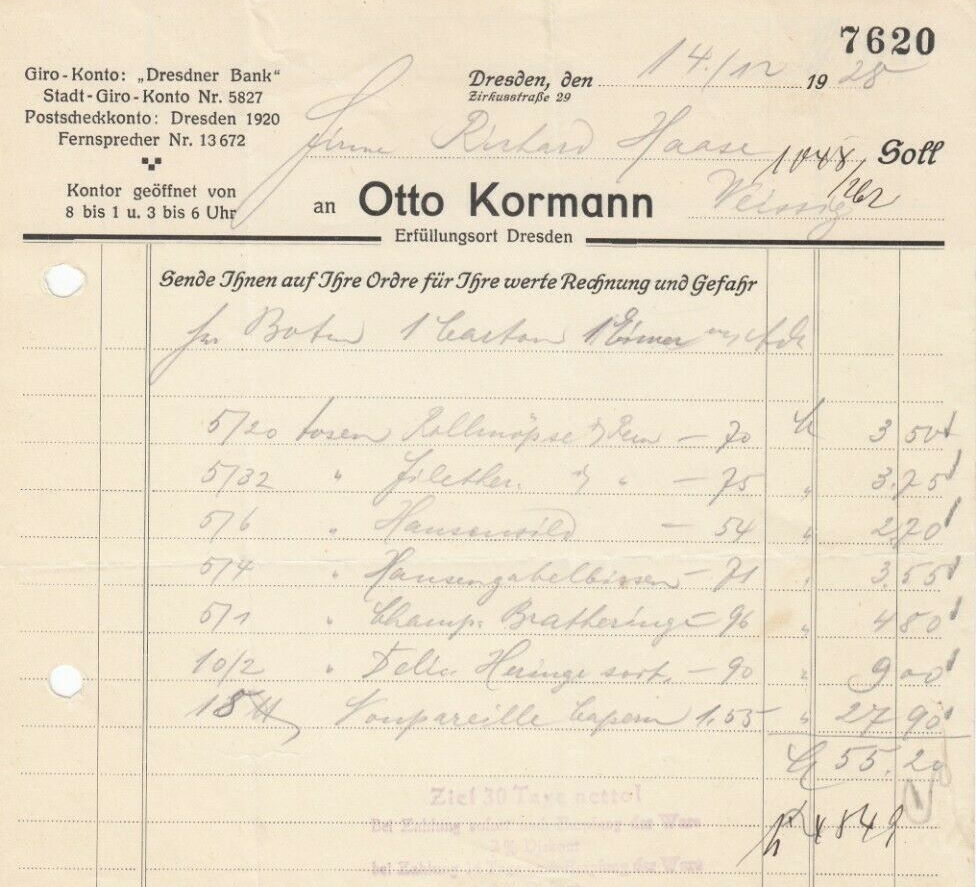 7620
Giro-Konto: „Dresdner Bank“
Stadt-Giro-Konto Nr. 5827
Postscheckkonto: Dresden 1920
Fernsprecher Nr. 13672
Kontor geöffnet von
8 bis 1 u. 3 bis 6 Uhr
Dresden, den 14./12 1928
Zirkusstraße 29
Firma Richard Haase
Soll
an Otto Kormann Weissig
Erfüllungsort Dresden
Sende Ihnen auf Ihre Ordre für Ihre werte Rechnung und Gefahr
per Boten 1 Carton 1 Eimer
5/20 Dosen Rollmöpse – 70 3 50
5/32 " Filether. " – 75 " 3.75
5/6 " – 54 " 2,70
5/4 " Hansengabelbissen – 71 " 3.55
5/1 " Champ. Bratheringe – 96 " 4 80
10/2 " Delic. Heringe sort. – 90 " 9 00
18 " Nonpareille Capern 1.55 " 27 90
55.20
Ziel 30 Tage netto!
Bei Zahlung sofort nach Empfang der Ware
bei Zahlung 14 Tage nach Empfang der Ware